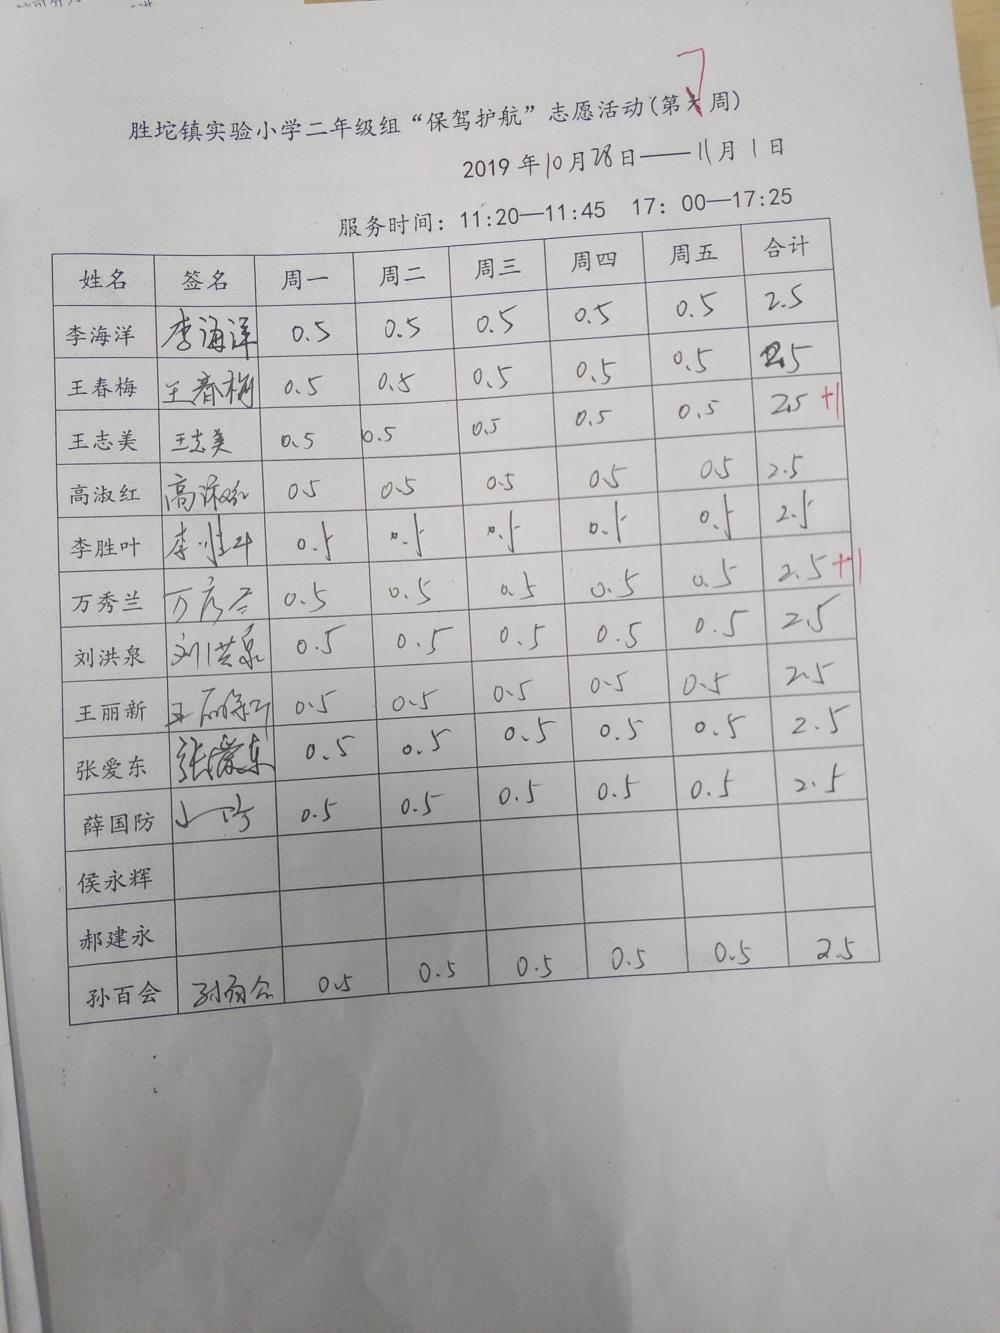 7
胜坨镇实验小学二年级组“保驾护航”志愿活动(第六周)
2019年10月28日——11月1日
服务时间：11:20—11:45 17:00—17:25
姓名 签名 周一 周二 周三 周四 周五 合计
李海洋 李海洋 0.5 0.5 0.5 0.5 0.5 2.5
王春梅 王春梅 0.5 0.5 0.5 0.5 0.5 2.5
王志美 王志美 0.5 0.5 0.5 0.5 0.5 2.5 +1
高淑红 高淑红 0.5 0.5 0.5 0.5 0.5 2.5
李胜叶 李胜叶 0.5 0.5 0.5 0.5 0.5 2.5
万秀兰 万秀兰 0.5 0.5 0.5 0.5 0.5 2.5 +1
刘洪泉 刘洪泉 0.5 0.5 0.5 0.5 0.5 2.5
王丽新 王丽新 0.5 0.5 0.5 0.5 0.5 2.5
张爱东 张爱东 0.5 0.5 0.5 0.5 0.5 2.5
薛国防 0.5 0.5 0.5 0.5 0.5 2.5
侯永辉
郝建永
孙百会 孙百会 0.5 0.5 0.5 0.5 0.5 2.5